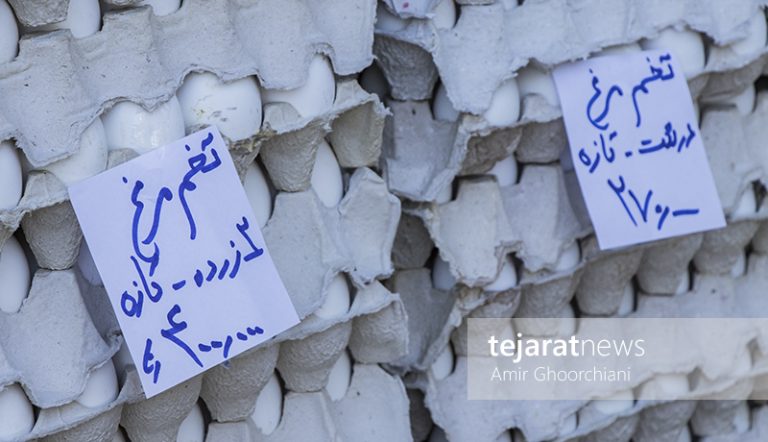 تخم مرغ
۲ زرده - تازه
۴۰۰,۰۰۰
تخم مرغ
درشت - تازه
۲۷۰,۰۰۰
tejaratnews
Amir Ghoorchiani